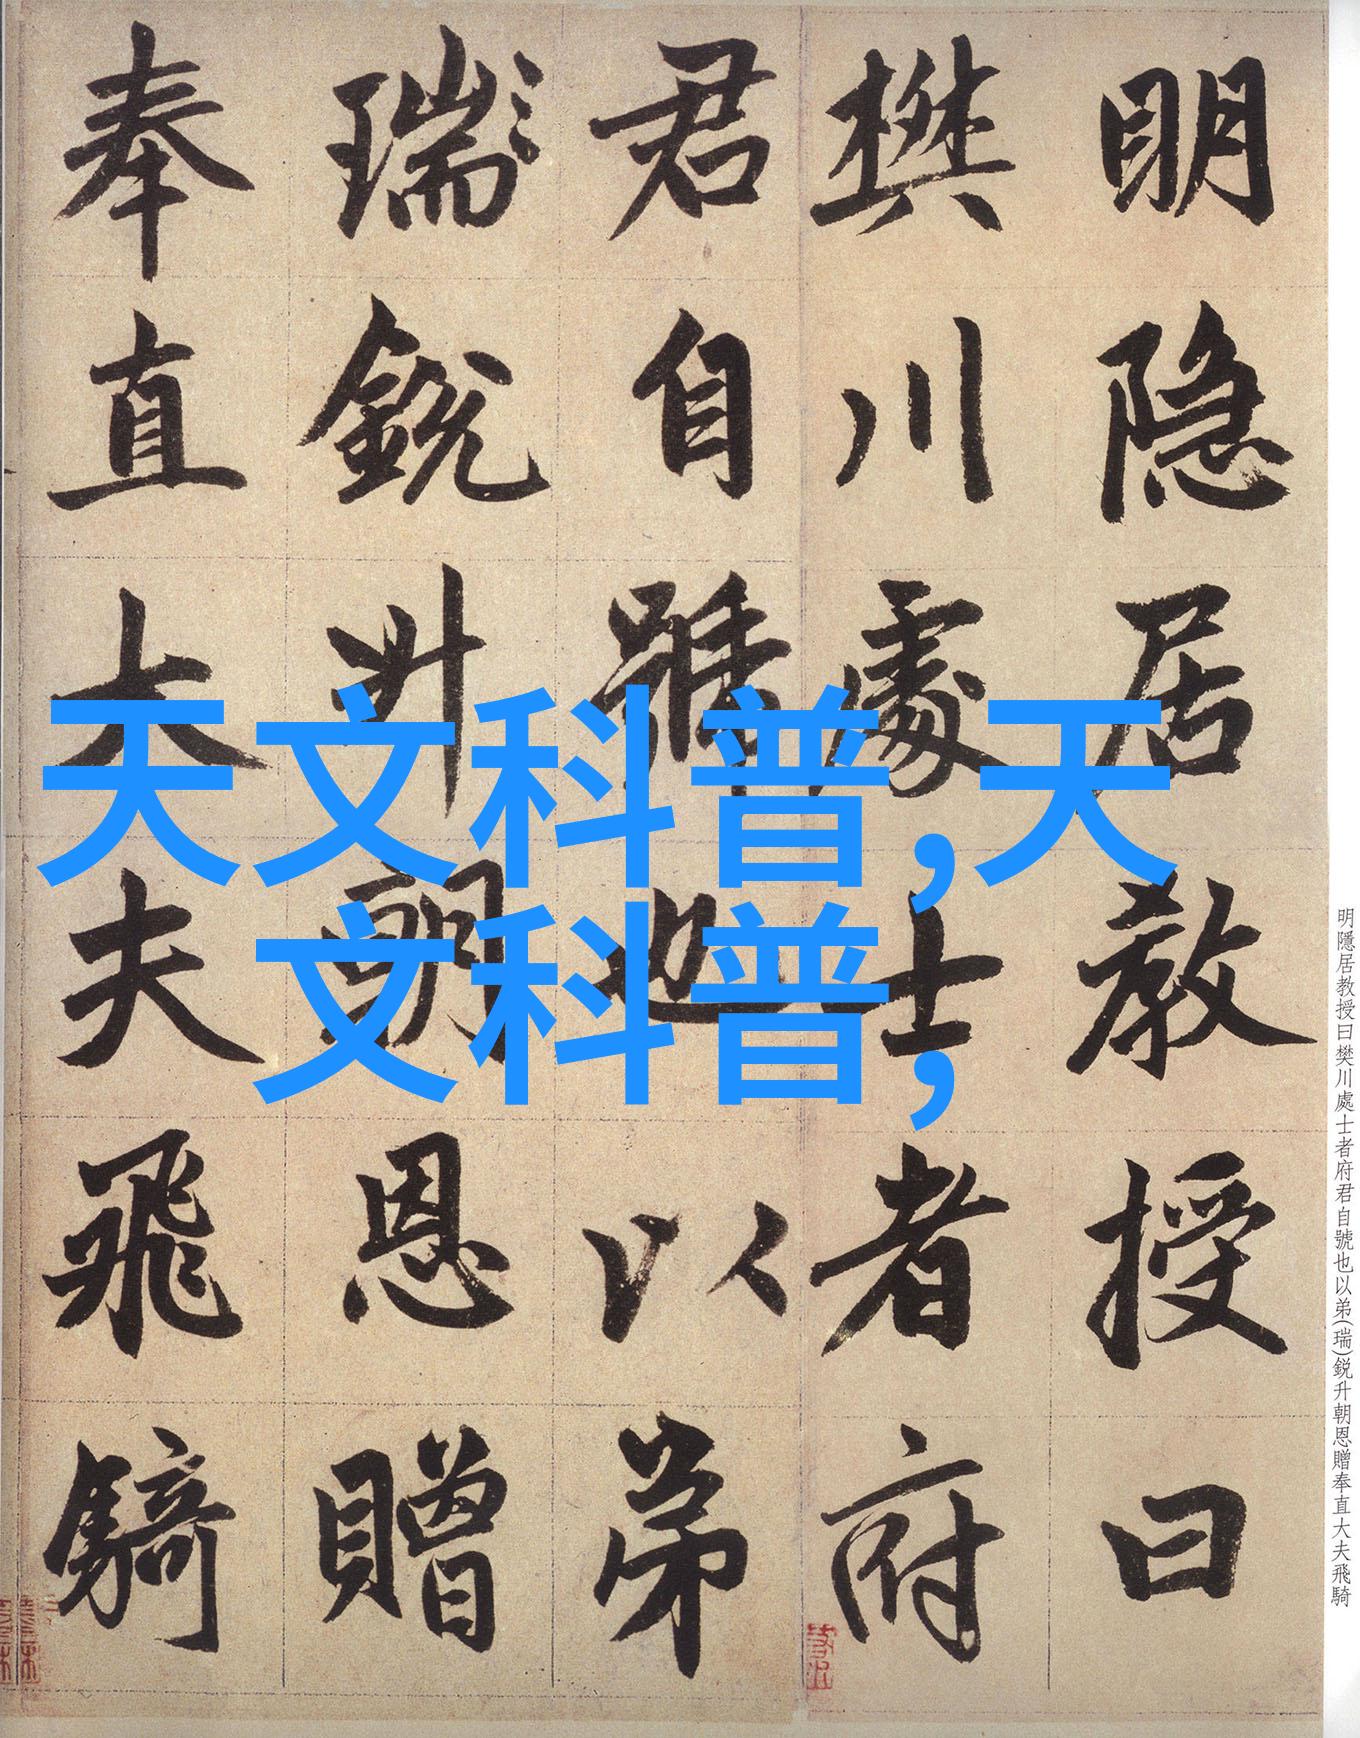 明隐居教授曰
樊川處士者府
君自號也以弟
瑞銳升朝恩贈
奉直大夫飛騎
天文科普,天
文科普,
明隱居教授曰樊川處士者府君自號也以弟(瑞)鋭升朝恩贈奉直大夫飛騎